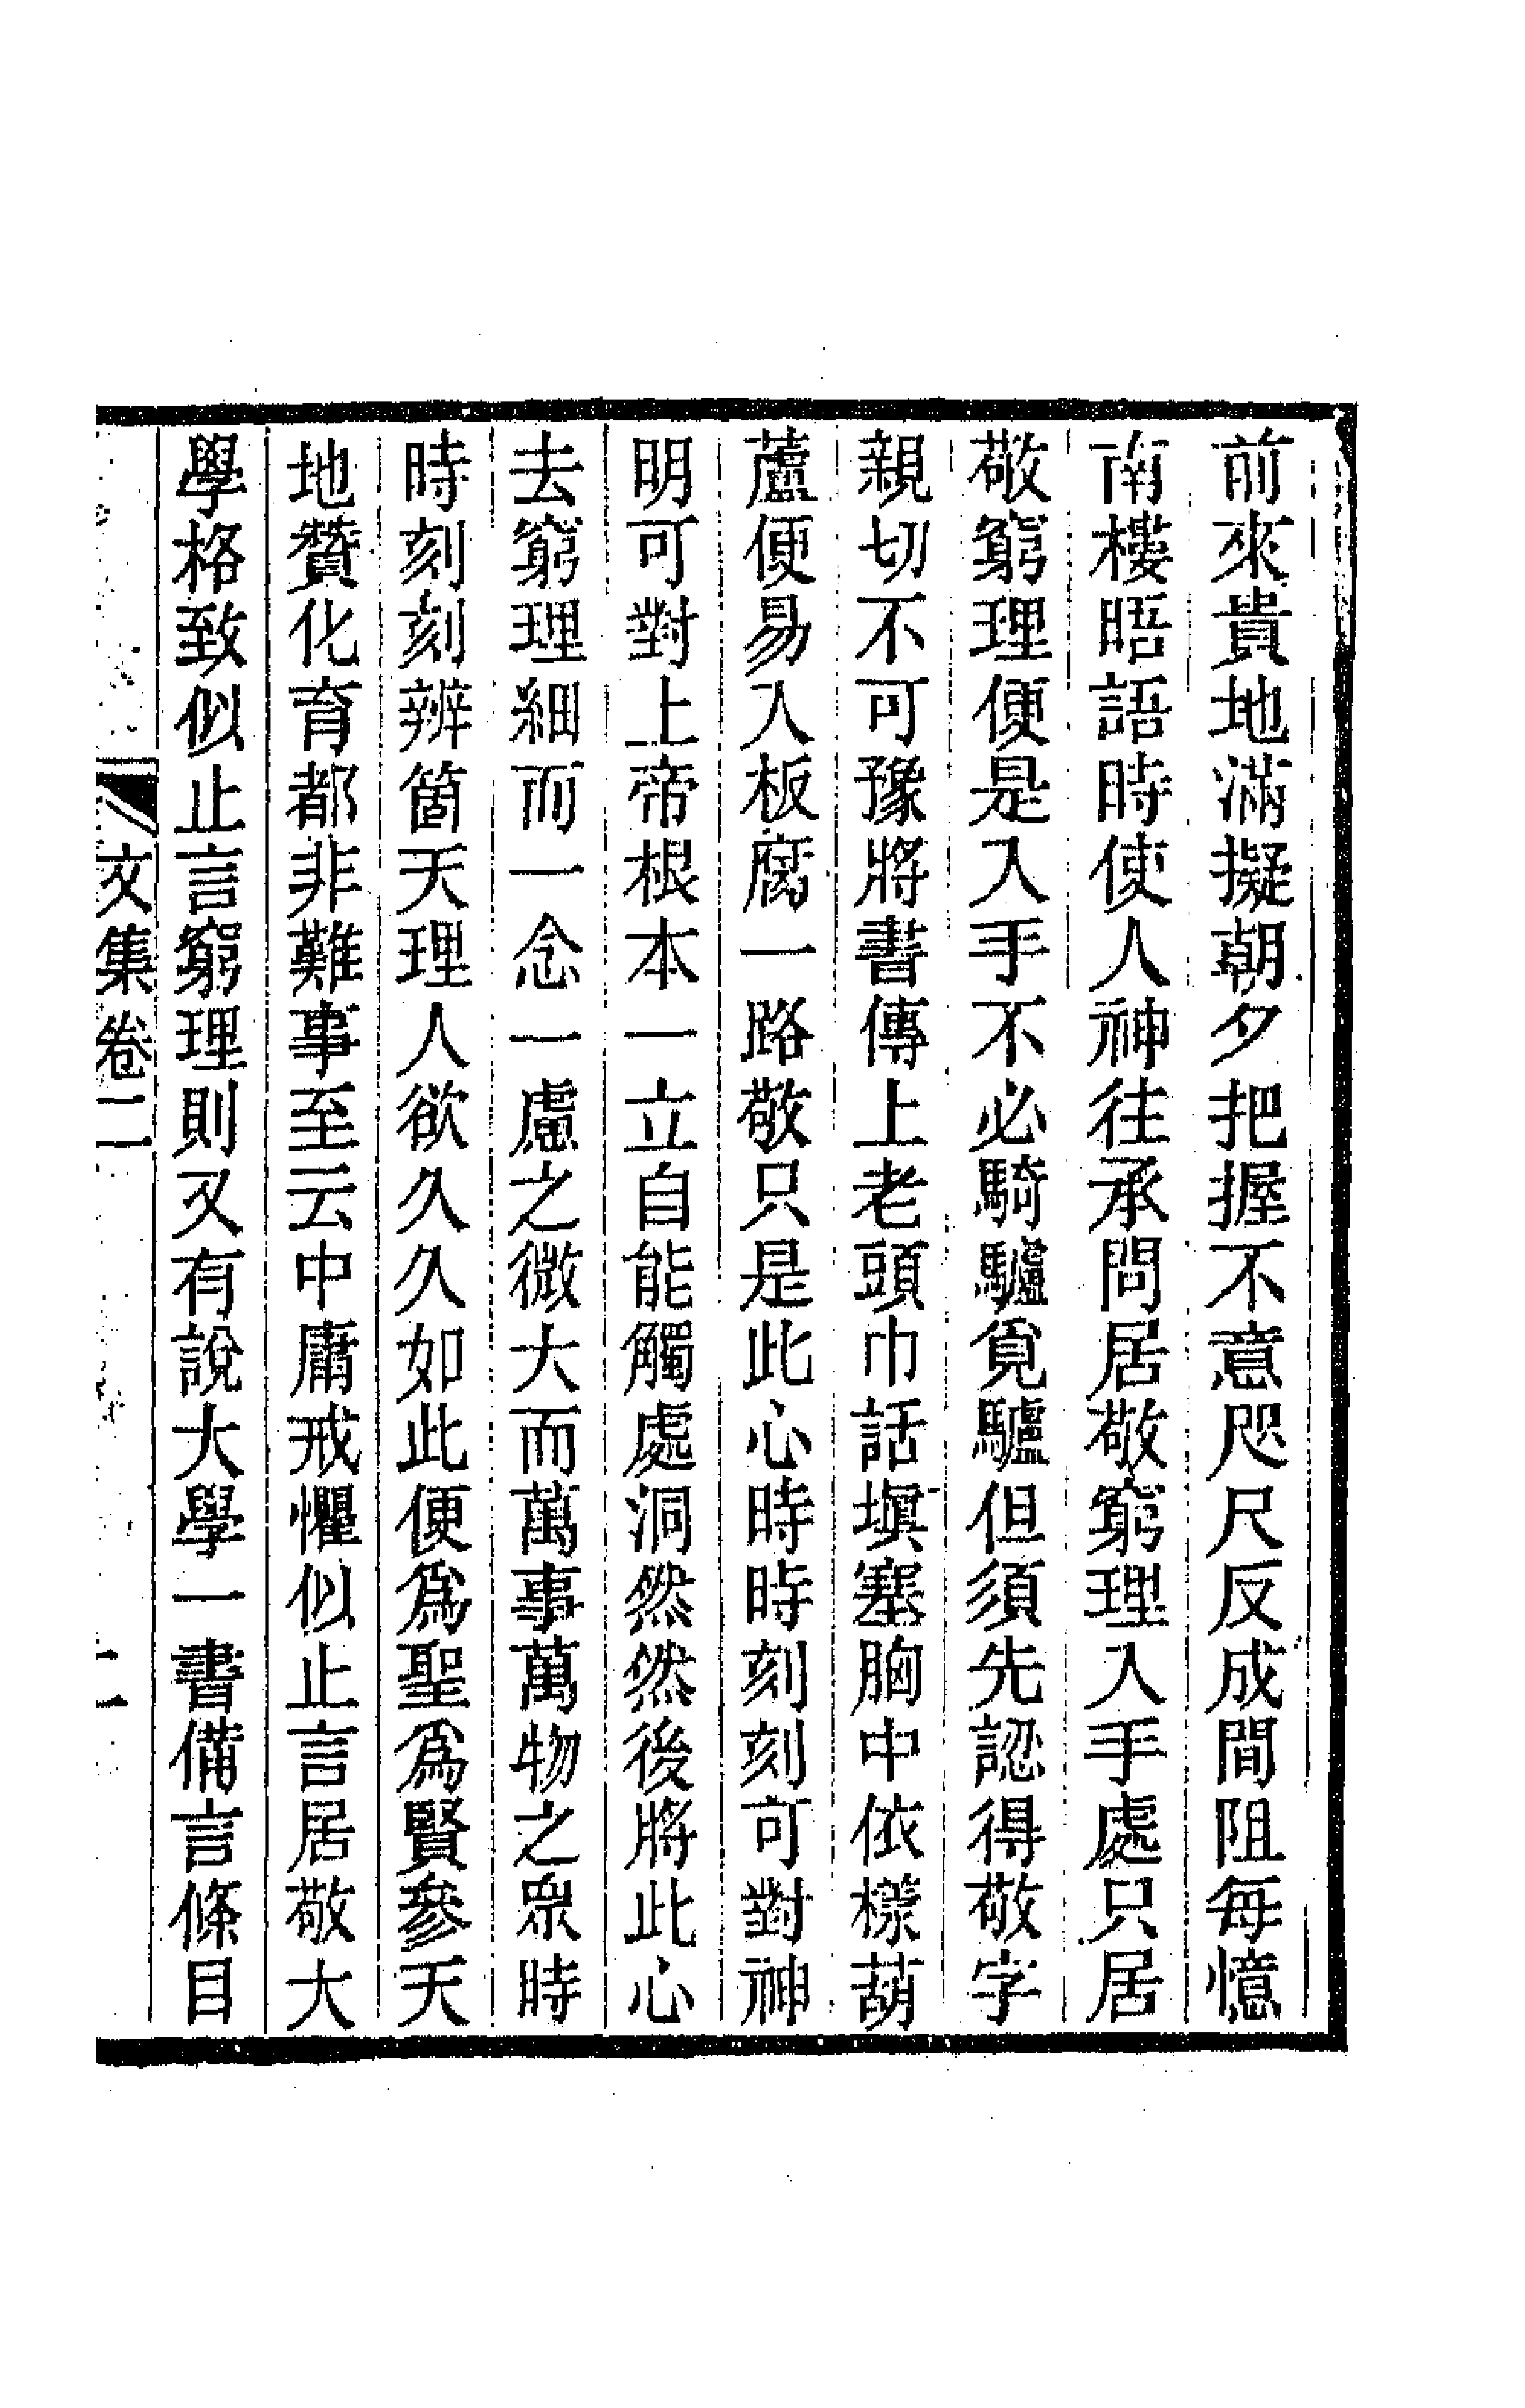 前來貴地滿擬朝夕把握不意咫尺反成間阻每憶
南樓晤語時使人神往承問居敬窮理入手處只居
敬窮理便是入手不必騎驢覓驢但須先認得敬字
親切不可豫將書傳上老頭巾話塡塞胸中依樣葫
蘆便易入板腐一路敬只是此心時時刻刻可對神
明可對上帝根本一立自能觸處洞然然後將此心
去窮理細而一念一慮之微大而萬事萬物之眾時
時刻刻辨箇天理人欲久久如此便爲聖爲賢參天
地贊化育都非難事至云中庸戒懼似止言居敬大
學格致似止言窮理則又有說大學一書備言條目
文集卷二
二